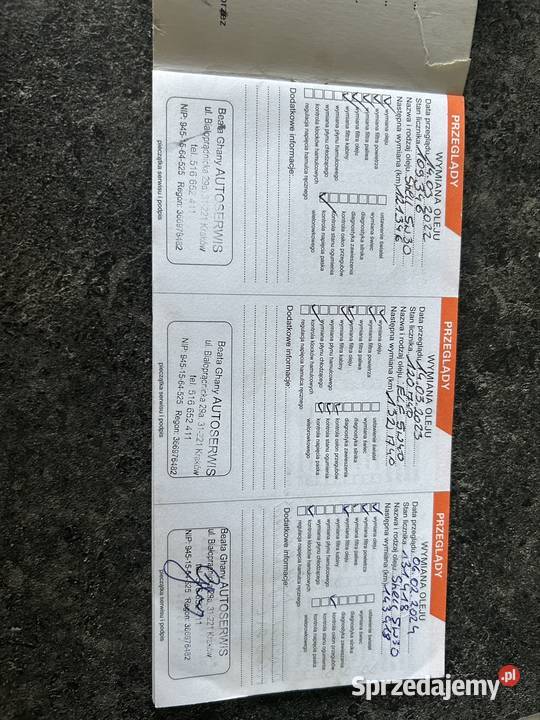 przez
PRZEGLĄDY
WYMIANA OLEJU
Data przeglądu: 14.03.2022
Stan licznika: 109.346
Nazwa i rodzaj oleju: Shell 5W30
Następna wymiana (km) 121346
wymiana oleju
wymiana filtra powietrza
wymiana filtra paliwa
wymiana filtra oleju
wymiana filtra kabiny
wymiana płynu hamulcowego
wymiana płynu chłodzącego
kontrola klocków hamulcowych
regulacja napięcia hamulca ręcznego
ustawienie świateł
wymiana świec
diagnostyka silnika
diagnostyka zawieszenia
kontrola osłon przegubów
kontrola stanu ogumienia
kontrola napięcia paska
wielorowkowego
Dodatkowe informacje:
Beata Ghany AUTOSERWIS
ul. Białoprądnicka 29a, 31-221 Kraków
tel. 516 652 411
NIP: 945-15-64-525 Regon: 366976482
pieczątka serwisu i podpis
PRZEGLĄDY
WYMIANA OLEJU
Data przeglądu: 14.03.2023
Stan licznika:
Nazwa i rodzaj oleju: ELF 5W40
Następna wymiana (km)
wymiana oleju
wymiana filtra powietrza
wymiana filtra paliwa
wymiana filtra oleju
wymiana filtra kabiny
wymiana płynu hamulcowego
wymiana płynu chłodzącego
kontrola klocków hamulcowych
regulacja napięcia hamulca ręcznego
ustawienie świateł
wymiana świec
diagnostyka silnika
diagnostyka zawieszenia
kontrola osłon przegubów
kontrola stanu ogumienia
kontrola napięcia paska
wielorowkowego
Dodatkowe informacje:
Beata Ghany AUTOSERWIS
ul. Białoprądnicka 29a, 31-221 Kraków
tel. 516 652 411
NIP: 945-15-64-525 Regon: 366976482
pieczątka serwisu i podpis
PRZEGLĄDY
WYMIANA OLEJU
Data przeglądu: 06.02.2024
Stan licznika: 131418
Nazwa i rodzaj oleju: Shell 5W30
Następna wymiana (km) 143418
wymiana oleju
wymiana filtra powietrza
wymiana filtra paliwa
wymiana filtra oleju
wymiana filtra kabiny
wymiana płynu hamulcowego
wymiana płynu chłodzącego
kontrola klocków hamulcowych
regulacja napięcia hamulca ręcznego
ustawienie świateł
wymiana świec
diagnostyka silnika
diagnostyka zawieszenia
kontrola osłon przegubów
kontrola stanu ogumienia
kontrola napięcia paska
wielorowkowego
Dodatkowe informacje:
Beata Ghany AUTOSERWIS
29a, 31-221 Kraków
NIP: 945-15-64-525 Regon: 366976482
pieczątka serwisu i podpis
Sprzedajemy.pl